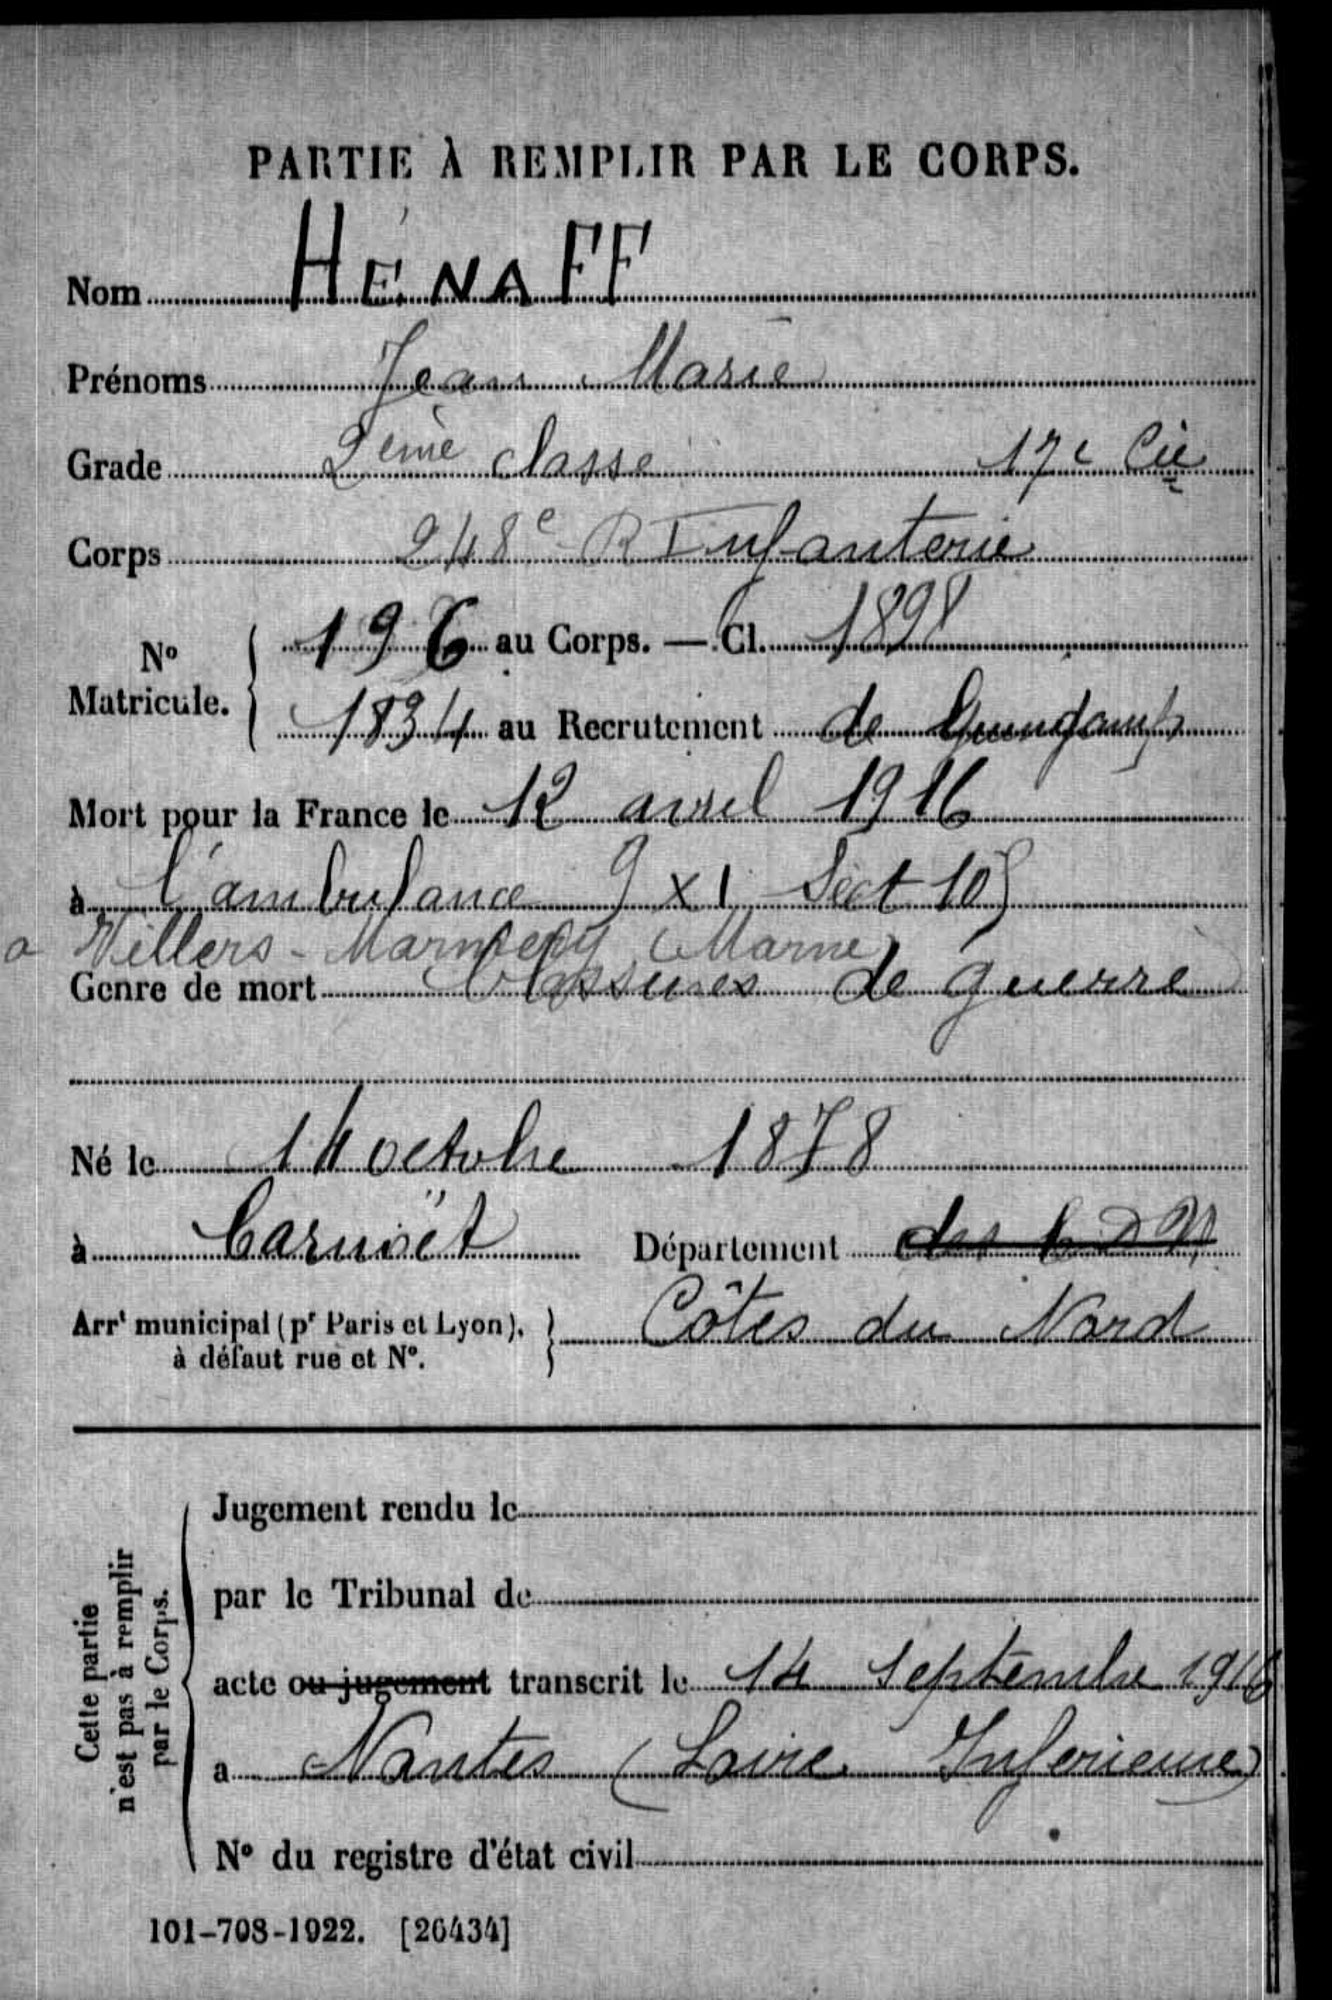 PARTIE À REMPLIR PAR LE CORPS.
Nom HÉNAFF
Prénoms Jean Marie
Grade 2ème classe 17e Cie
Corps 248e R Infanterie
No Matricule. 196 au Corps. — Cl. 1898
1834 au Recrutement de Guingamp
Mort pour la France le 12 avril 1916
à l'ambulance 9 x 1 Sect 105
a Villers-Marmery (Marne)
Genre de mort blessures de guerre
Né le 14 octobre 1878
à Carnoët Département des C D N
Arrt municipal (pr Paris et Lyon), à défaut rue et No. Côtes du Nord
Cette partie n'est pas à remplir par le Corps.
Jugement rendu le
par le Tribunal de
acte ou jugement transcrit le 14 septembre 1916
a Nantes (Loire Inférieure)
No du registre d'état civil
101-708-1922. [26434]